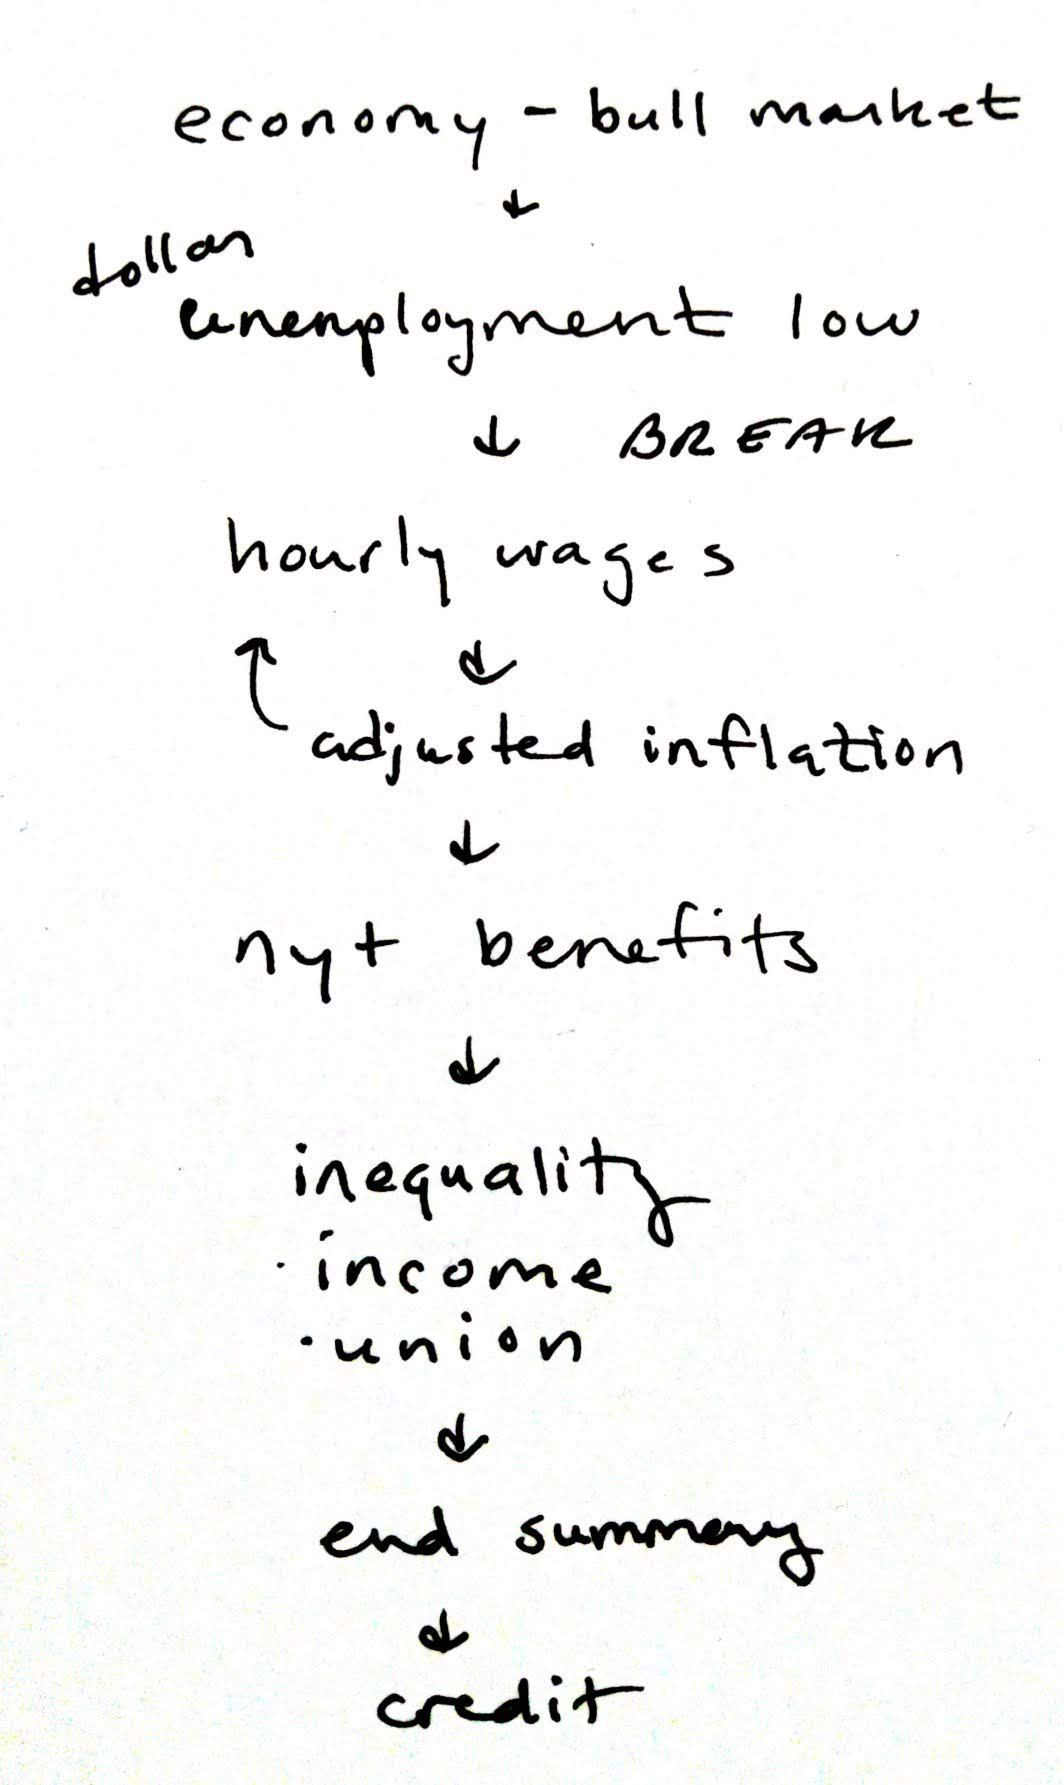 economy - bull market
↓
dollar
unemployment low
↓ BREAK
hourly wages
↑ ↓
adjusted inflation
↓
nyt benefits
↓
inequality
· income
· union
↓
end summary
↓
credit